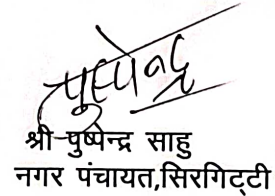 पुष्पेन्द्र
श्री पुष्पेन्द्र साहु
नगर पंचायत,सिरगिट्टी